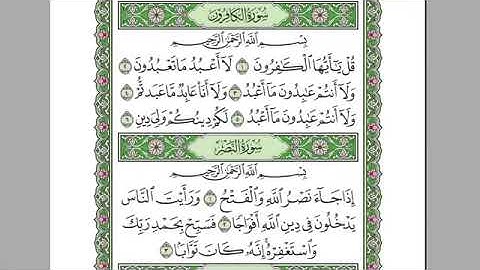 سُورَةُ الكَافِرُونَ
بِسْمِ اللَّهِ الرَّحْمَٰنِ الرَّحِيمِ
قُلْ يَٰٓأَيُّهَا ٱلْكَٰفِرُونَ ١ لَآ أَعْبُدُ مَا تَعْبُدُونَ ٢
وَلَآ أَنتُمْ عَٰبِدُونَ مَآ أَعْبُدُ ٣ وَلَآ أَنَا۠ عَابِدٌ مَّا عَبَدتُّمْ ٤
وَلَآ أَنتُمْ عَٰبِدُونَ مَآ أَعْبُدُ ٥ لَكُمْ دِينُكُمْ وَلِيَ دِينِ ٦
سُورَةُ النَّصْرِ
بِسْمِ اللَّهِ الرَّحْمَٰنِ الرَّحِيمِ
إِذَا جَآءَ نَصْرُ ٱللَّهِ وَٱلْفَتْحُ ١ وَرَأَيْتَ ٱلنَّاسَ
يَدْخُلُونَ فِى دِينِ ٱللَّهِ أَفْوَاجًا ٢ فَسَبِّحْ بِحَمْدِ رَبِّكَ
وَٱسْتَغْفِرْهُ إِنَّهُۥ كَانَ تَوَّابًۢا ٣